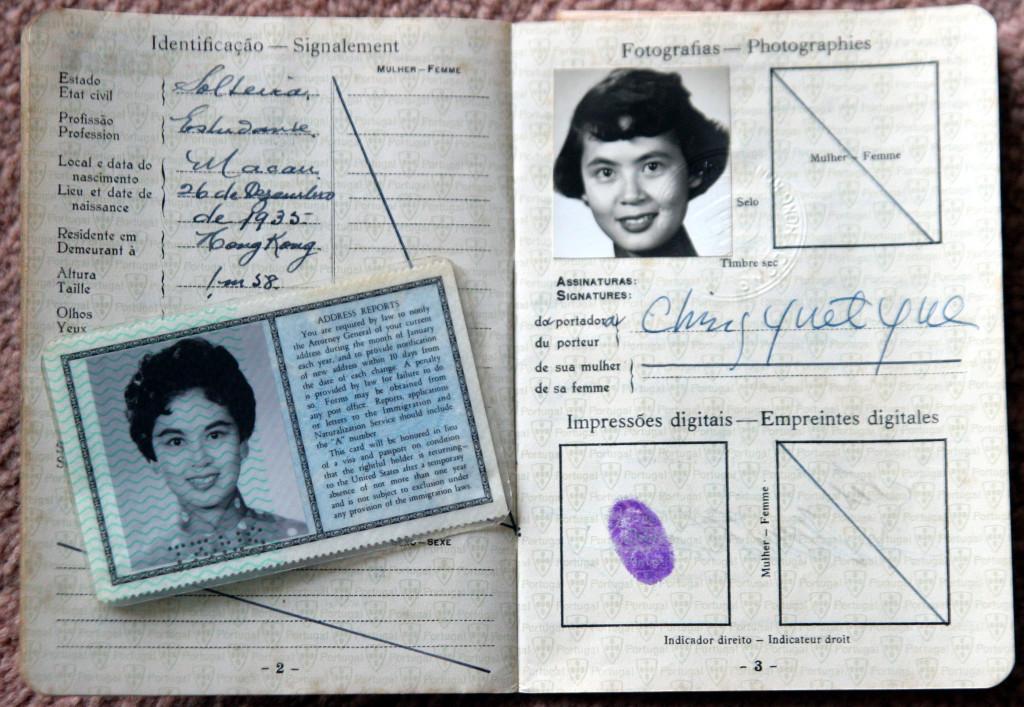 Identificação — Signalement
MULHER — FEMME
Estado
Etat civil
Solteira
Profissão
Profession
Estudante
Local e data do
nascimento
Lieu et date de
naissance
Macau
26 de Dezembro
de 1935
Residente em
Demeurant à
Hong Kong
Altura
Taille
1m 58
Olhos
Yeux
ADDRESS REPORTS
You are required by law to notify
the Attorney General of your current
address during the month of January
each year, and to provide notification
of new address within 10 days from
the date of each change. A penalty
is provided by law for failure to do
so. Forms may be obtained from
any post office. Reports, applications
or letters to the Immigration and
Naturalization Service should include
the "A" number
This card will be honored in lieu
of a visa and passport on condition
that the rightful holder is returning
to the United States after a temporary
absence of not more than one year
and is not subject to exclusion under
any provision of the immigration laws.
SEXE
- 2 -
Fotografias — Photographies
Mulher - Femme
Selo
Timbre sec
ASSINATURAS:
SIGNATURES:
da portadora
du porteur
Ching Yuet Yue
de sua mulher
de sa femme
Impressões digitais — Empreintes digitales
Mulher - Femme
Indicador direito - Indicateur droit
- 3 -